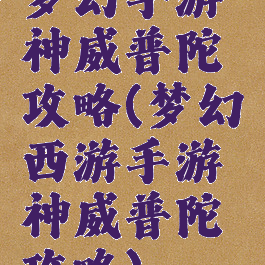 梦幻手游
神威普陀
攻略(梦幻
西游手游
神威普陀
攻略)